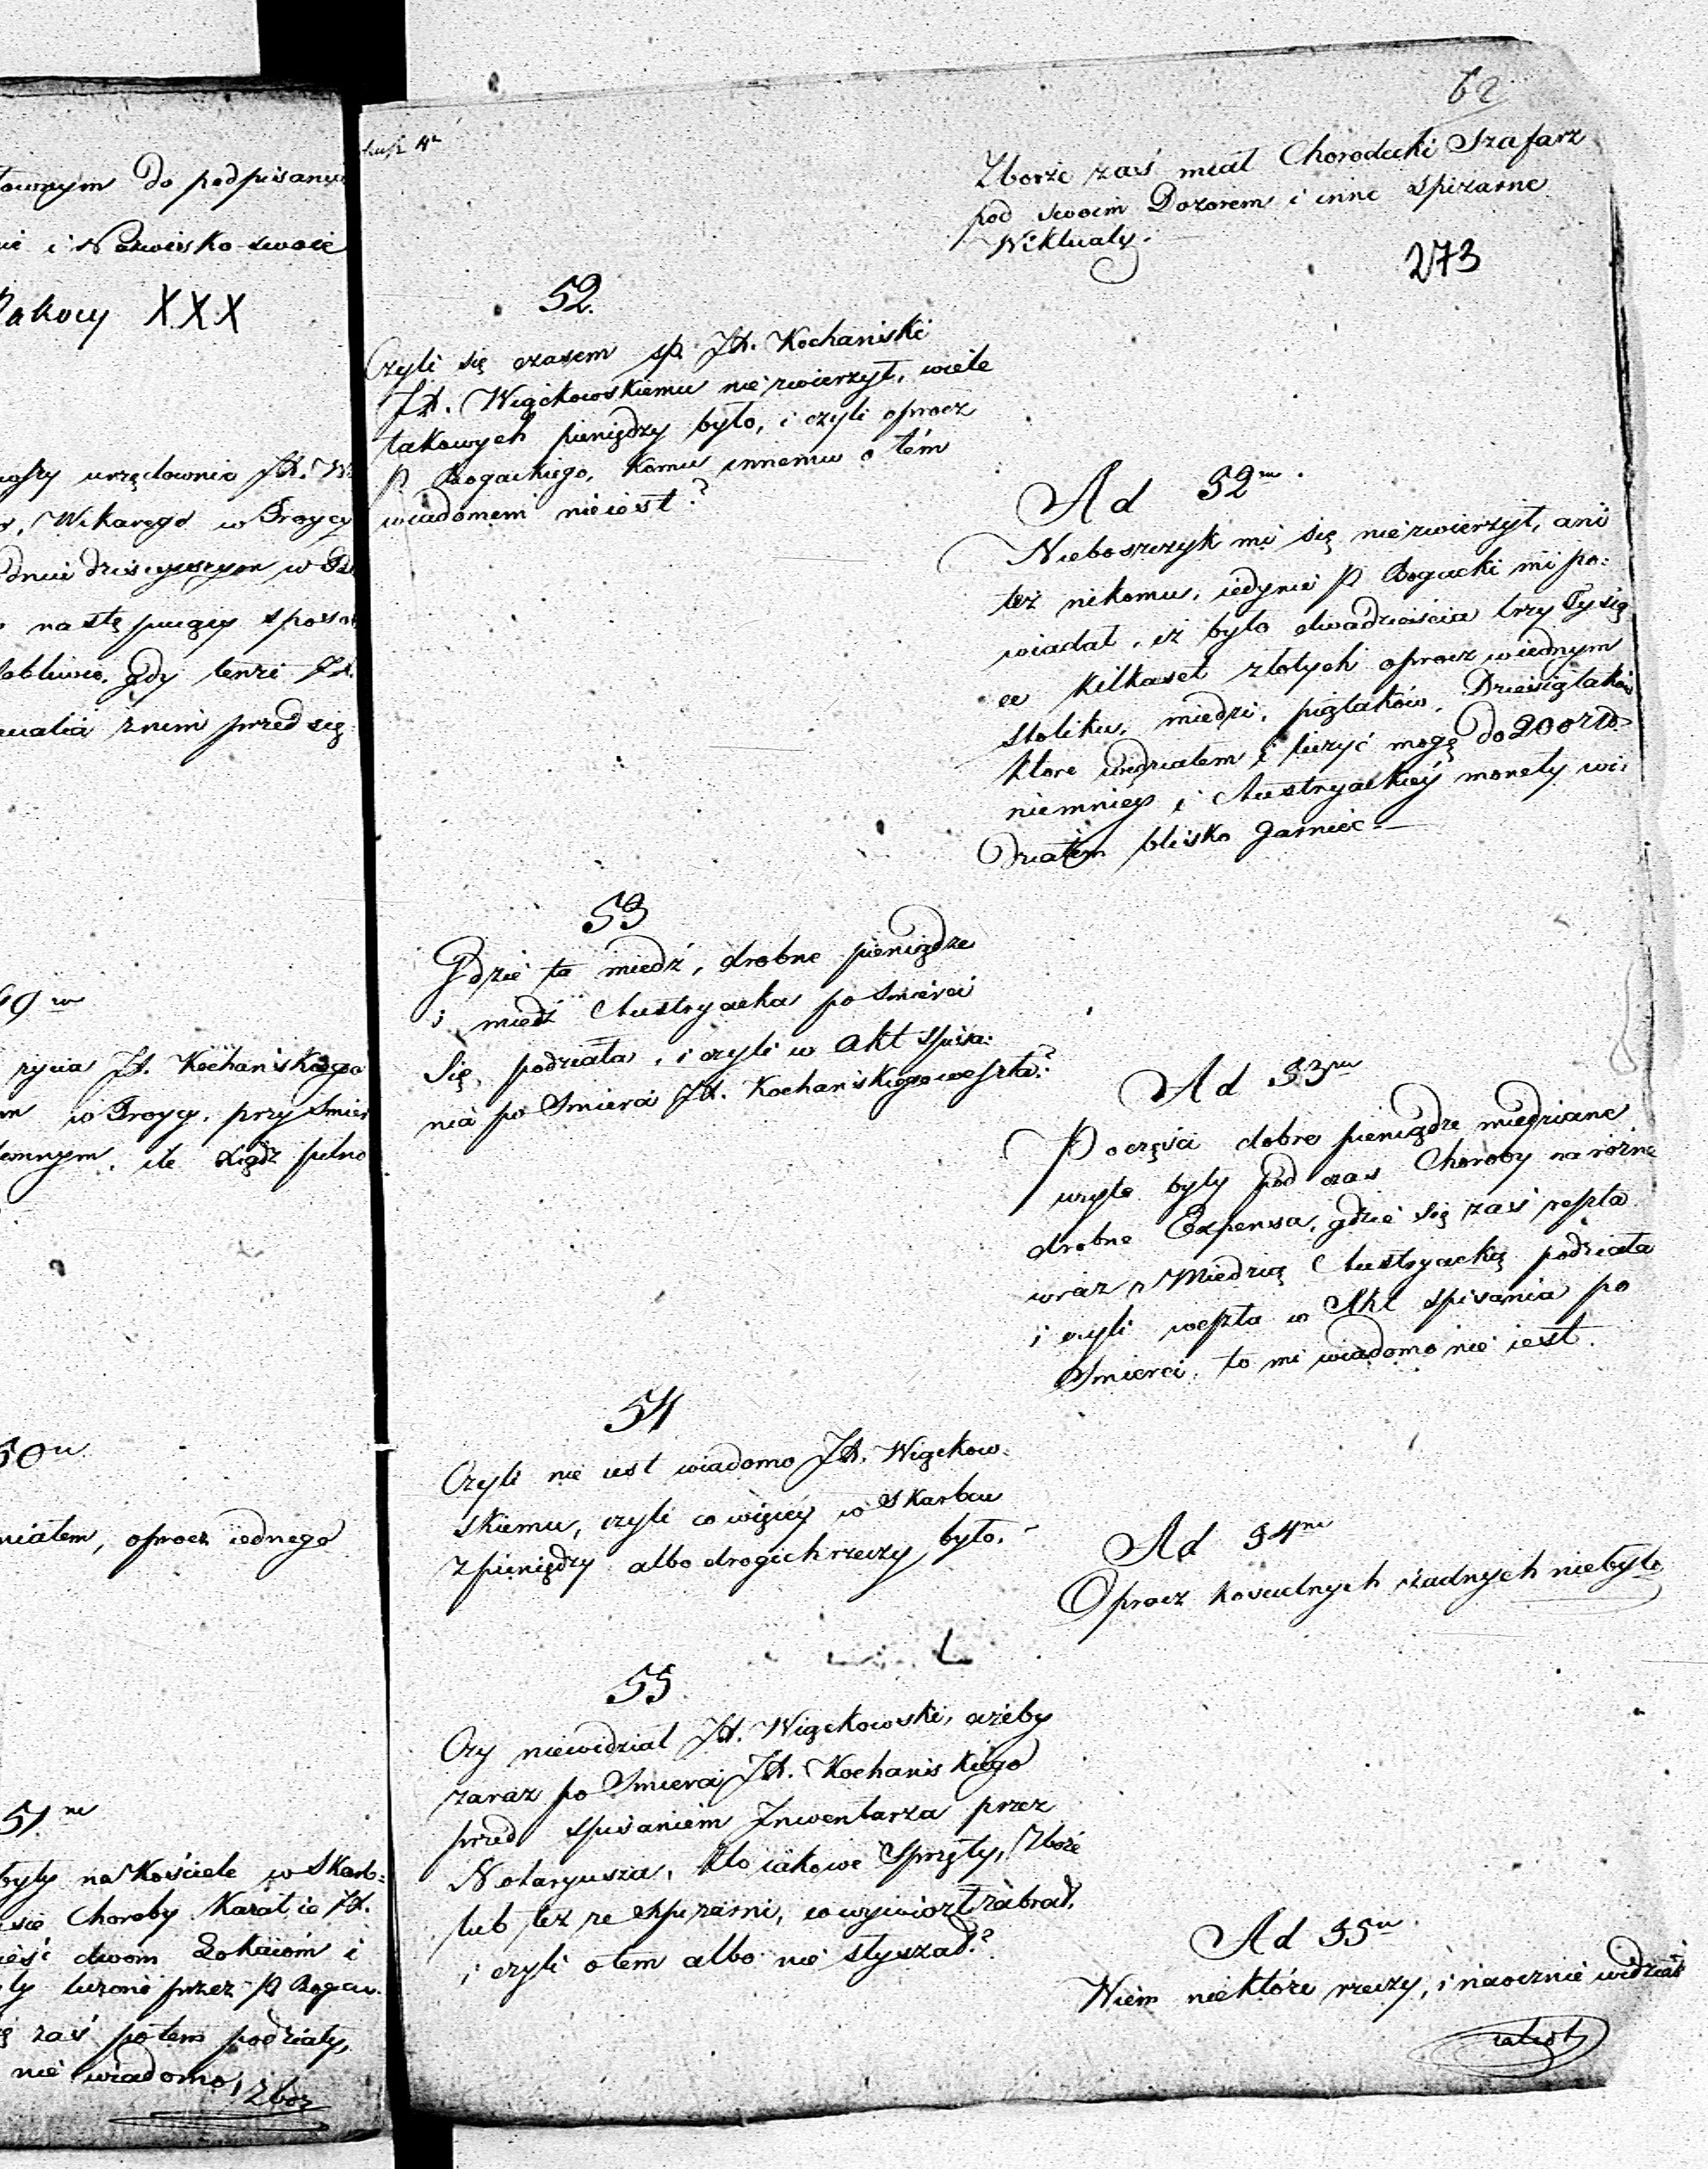 townym do podpisania
i Nazwisko swoie
Rakocy XXX
urzędownie JX.
Wikarego w Troycy
dniu dzisieyszym w
następuiący sposob
Gdy tenże JX.
z nim przedsię
49m
życia JX. Kochanskiego
w Troycy, przy Smier
ile Xiądz pełno
50m
miałem, oprocz iednego
51m
były na Kościele w Skarb=
Choroby Kazał ie JX.
dwom Lokaiom i
przez P. Bogac.
zaś potem podziały,
nie wiadomo,
Zboz
62
Zboże zaś miał Chorodecki Szafarz
pod swoim Dozorem i inne Spiżarne
Wiktuały.
273
52.
Czyli się czasem sp. JX. Kochaniski
JX. Więckowskiemu niezwierzył, wiele
takowych pieniędzy było, i czyli oprocz
P. Bogackiego, komu innemu o tém
wiadomem nieiest?
Ad 52m.
Nieboszczyk mi się niezwierzył, ani
też nikomu, iedynie P. Bogacki mi po:
wiadał, iż było dwadzieścia trzy Tysią
ce kilkaset złotych oprocz wiednym
stoliku, miedzi, piętaków, Dziesiętaków
ktore widziałem i liczyć mogę do 200 złt.
niemniey i Austryackiéy monety wi:
działem blisko garniec.—
53
Gdzie ta miedź, drobne pieniądze
i miedź Austryacka po Smierci
Się podziała, i czyli w Akt Spisa:
nia po Smierci JX. Kochaniskiego weszła?
Ad 53m
Poczęści dobre pieniądze miedziane
wzięte były pod czas Choroby na rożne
drobne Expensa, gdzie się zaś reszta
wraz z Miedzią Austryacką podziała
i czyli weszła w Akt Spisania po
Smierci, to mi wiadomo nie iest.
54
Czyli nie iest wiadomo JX. Więckow:
skiemu, czyli co więcéy w Skarbcu
z pieniędzy albo drogich rzeczy było.
Ad 54m
Oprocz kościelnych żadnych niebyło
55
Czy niewidział JX. Więckowski, ażeby
zaraz po Smierci JX. Kochaniskiego
przed spisaniem Inwentarza przez
Notaryusza, kto iakowe Sprzęty, Zboże
lub też ze Spiżarni, co wywiozł zabrał,
i czyli o tem albo nie słyszał?
Ad 55m
Wiem niektóre rzeczy, i naocznie widział